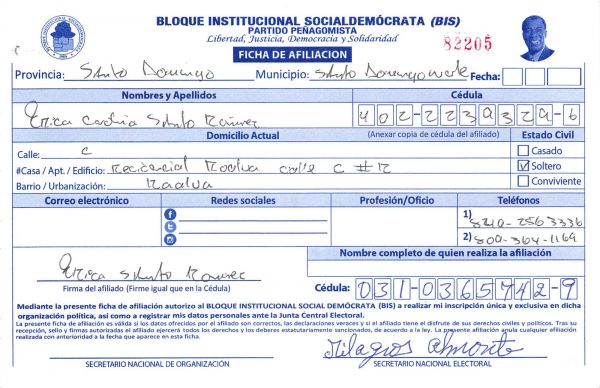 BLOQUE INSTITUCIONAL SOCIALDEMÓCRATA (BIS)
PARTIDO PEÑAGOMISTA
Libertad, Justicia, Democracia y Solidaridad
82205
FICHA DE AFILIACION
Provincia: Santo Domingo Municipio: Santo Domingo norte Fecha:
Nombres y Apellidos Cédula
Erica Santo Ramirez 402-2239329-6
Domicilio Actual (Anexar copia de cédula del afiliado) Estado Civil
Calle: C Casado
#Casa / Apt. / Edificio: Recidencial calle C # Soltero
Barrio / Urbanización: Conviviente
Correo electrónico Redes sociales Profesión/Oficio Teléfonos
1) 829-256 3336
2) 809-364-1169
Nombre completo de quien realiza la afiliación
Erica Santo Ramirez
Firma del afiliado (Firme igual que en la Cédula) Cédula: 031-0365742-9
Mediante la presente ficha de afiliación autorizo al BLOQUE INSTITUCIONAL SOCIAL DEMÓCRATA (BIS) a realizar mi inscripción única y exclusiva en dicha
organización política, así como a registrar mis datos personales ante la Junta Central Electoral.
La presente ficha de afiliación es válida si los datos ofrecidos por el afiliado son correctos, las declaraciones veraces y si el afiliado tiene el disfrute de sus derechos civiles y políticos. Tras su
recepción, sello y firmas autorizadas el afiliado ejercerá todos los derechos y los deberes estatutariamente sancionados, de acuerdo a la ley. La presente afiliación anula cualquier afiliación
realizada con anterioridad a la fecha que aparece en esta ficha.
Milagros Almonte
SECRETARIO NACIONAL DE ORGANIZACIÓN SECRETARIO NACIONAL ELECTORAL